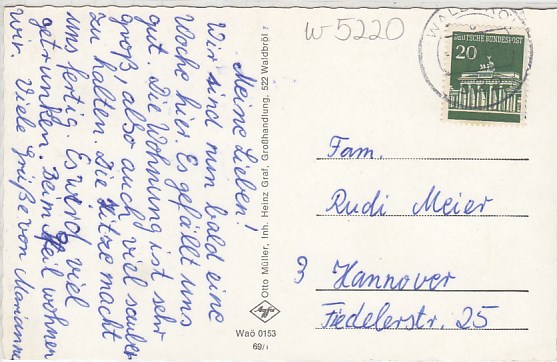 Meine Lieben!
Wir sind nun bald eine
Woche hier. Es gefällt uns
gut. Die Wohnung ist sehr
groß, also auch viel sauber
zu halten. Die Hitze macht
uns fertig. Es wird viel
getrunken. Beim Heil wohnen
wir. Viele Grüße von Marianne
Otto Müller, Inh. Heinz Graf, Großhandlung, 522 Waldbröl
Agfa
Waö 0153
69/1
W 5220
DEUTSCHE BUNDESPOST
20
Fam.
Rudi Meier
3 Hannover
Fiedelerstr. 25